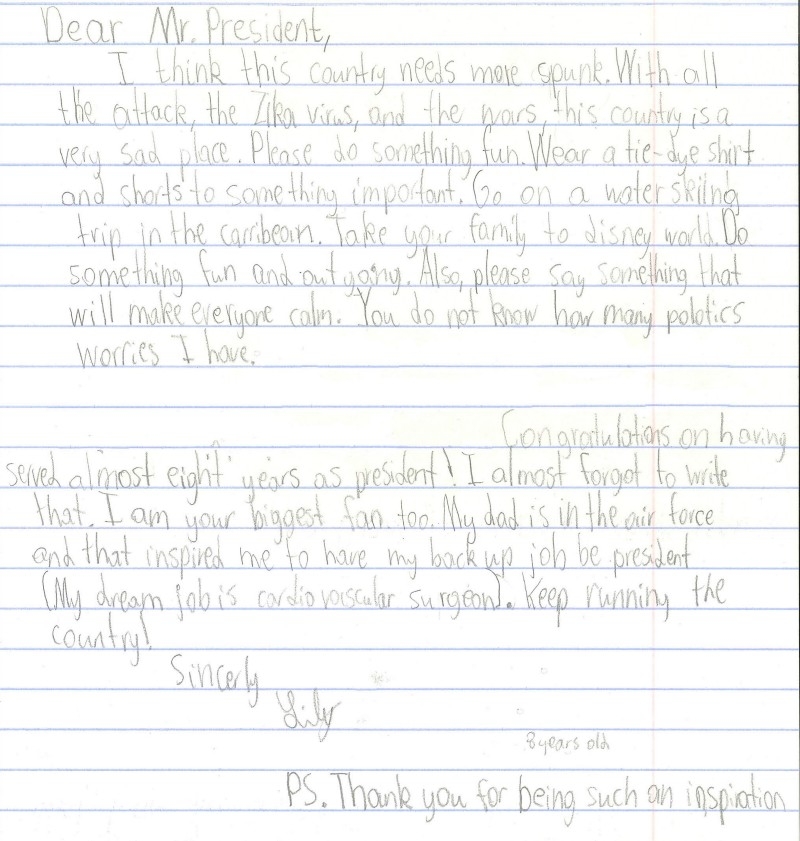 Dear Mr. President,
I think this country needs more spunk. With all
the attack, the Zika virus, and the wars, this country is a
very sad place. Please do something fun. Wear a tie-dye shirt
and shorts to something important. Go on a water skiing
trip in the carribean. Take your family to disney world. Do
something fun and outgoing. Also, please say something that
will make everyone calm. You do not know how many polotics
worries I have.
Congratulations on having
served almost eight years as president! I almost forgot to write
that. I am your biggest fan too. My dad is in the air force
and that inspired me to have my back up job be president
(My dream job is cardiovascular surgeon). Keep running the
country!
Sincerly
Lily
8 years old
PS. Thank you for being such an inspiration